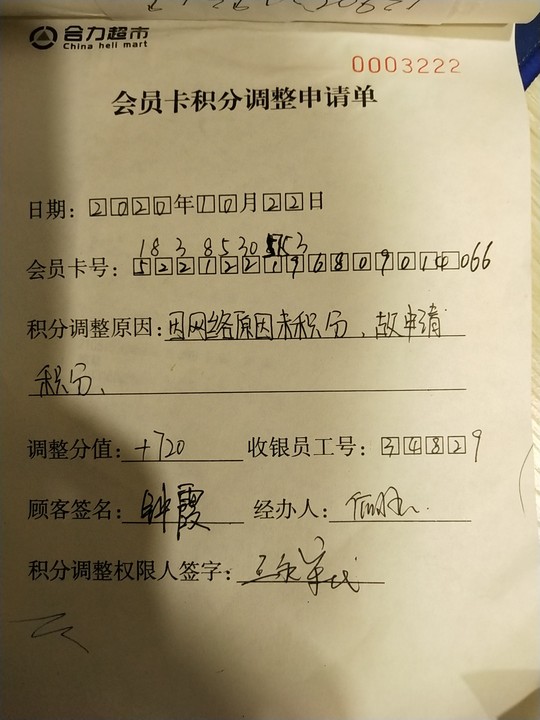 合力超市
China heli mart
0003222
会员卡积分调整申请单
日期：2020年10月22日
会员卡号：522122196809014066
积分调整原因：因网络原因未积分、故申请
积分、
调整分值：+720 收银员工号：34829
顾客签名：钟霞 经办人：
积分调整权限人签字：